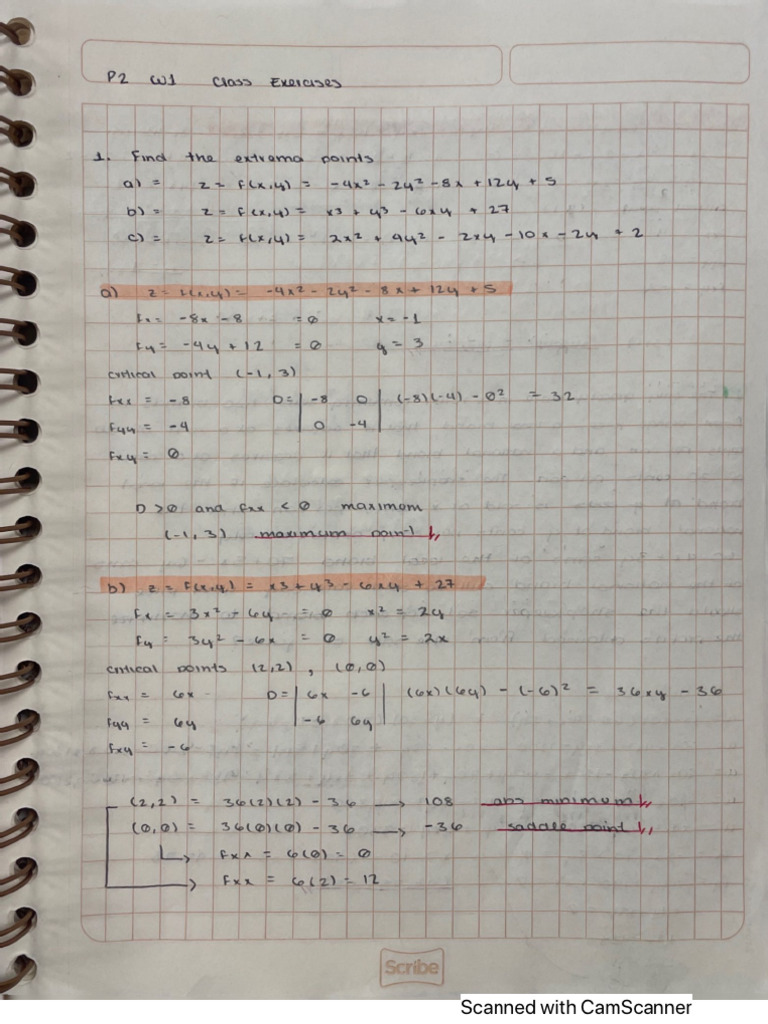 P2 W1 Class Exercises
1. Find the extrema points
a) = z = f(x,y) = -4x² - 2y² - 8x + 12y + 5
b) = z = f(x,y) = x3 + y³ - 6xy + 27
c) = z = f(x,y) = 2x² + 4y² - 2xy - 10x - 2y + 2
a) z = f(x,y) = -4x² - 2y² - 8x + 12y + 5
fx = -8x - 8 = 0 x = -1
fy = -4y + 12 = 0 y = 3
critical point (-1, 3)
fxx = -8 D = | -8 0 | (-8)(-4) - 0² = 32
fyy = -4 | 0 -4 |
fxy = 0
D > 0 and fxx < 0 maximum
(-1, 3) maximum point
b) z = f(x,y) = x3 + y³ - 6xy + 27
fx = 3x² - 6y = 0 x² = 2y
fy = 3y² - 6x = 0 y² = 2x
critical points (2,2) , (0,0)
fxx = 6x D = | 6x -6 | (6x)(6y) - (-6)² = 36xy - 36
fyy = 6y | -6 6y |
fxy = -6
(2,2) = 36(2)(2) - 36 → 108 minimum
(0,0) = 36(0)(0) - 36 → -36 saddle point
→ fxx = 6(0) = 0
→ fxx = 6(2) = 12
Scribe
Scanned with CamScanner